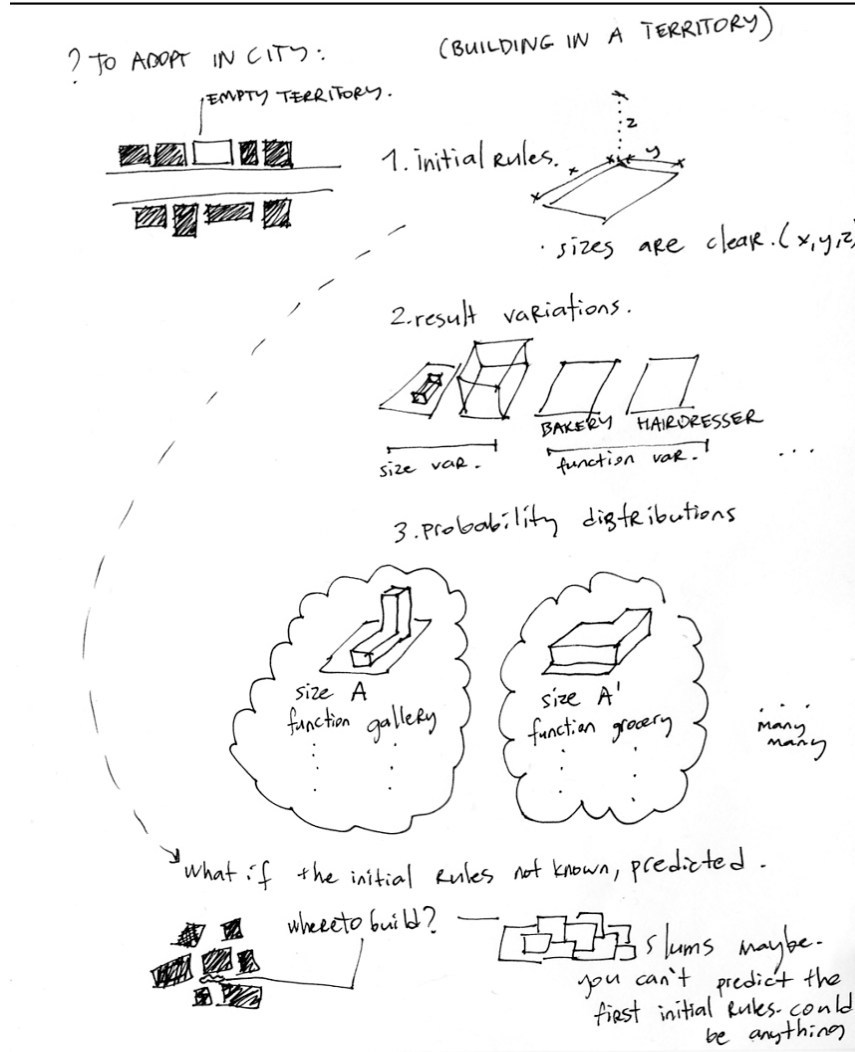 ? TO ADOPT IN CITY:
(BUILDING IN A TERRITORY)
EMPTY TERRITORY.
1. initial Rules.
z
x
y
. sizes are clear. (x,y,z)
2. result variations.
BAKERY
HAIRDRESSER
size var.
function var.
...
3. probability distributions
size A
function gallery
size A'
function grocery
many
many
what if the initial rules not known, predicted.
where to build?
slums maybe.
you can't predict the
first initial rules. could
be anything